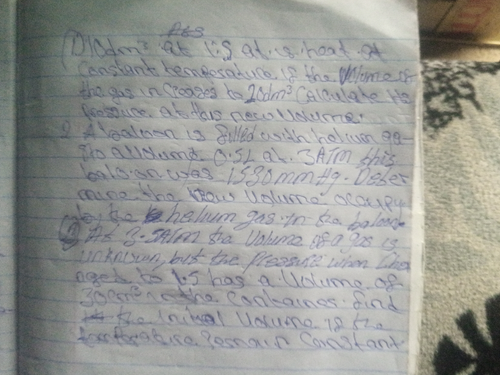 (1) 10dm³ at 1.5 at is heat at
constant temperature if the Volume of
the gas increases to 20dm³ Calculate the
pressure at this new volume.
2. A baloon is filled with helium ga
to a Volume 0.5L at 3ATM this
baloon was 1530mmHg. Deter
mine the new Volume occupy
by the helium gas in the baloon
(3) At 2.5ATM the Volume of a gas is
unknown, but the Pressure when Cha
nged to 1.5 has a Volume of
300cm³ in the Container. find
the inital Volume if the
temperature remain Constant